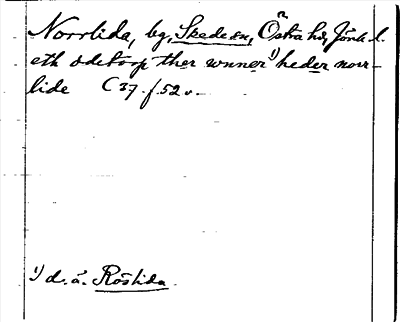 Norrlida, by, Skede sn, Östra hd, Jönk. l.
eth ödetorp ther wnner¹⁾ heder norr-
lide C 37 f. 52 v.
¹⁾ d. ä. Röslida